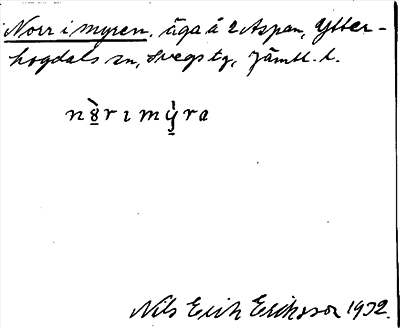 Norr i myren, äga å 2 Aspan, Ytter-
hogdals sn, Svegs tg, Jämtl. l.
n8̤̀rımỳ̤ra
Nils Erik Eriksson 1932.